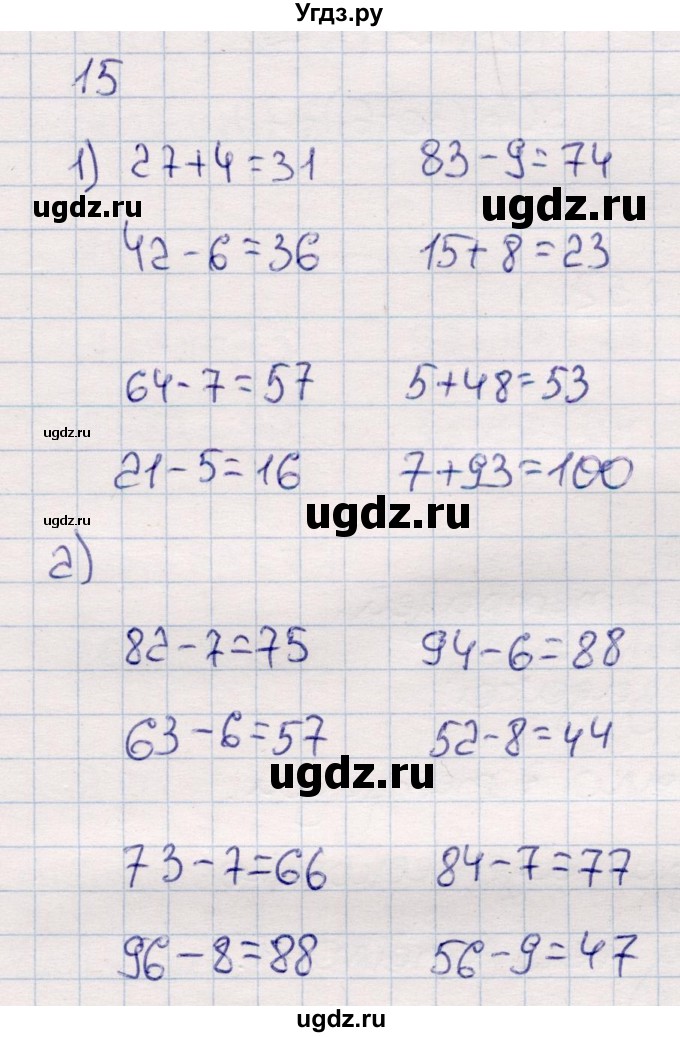 Угдз.ру
15
1) 27+4=31 83-9=74
ugdz.ru
ugdz.ru
42-6=36 15+8=23
64-7=57 5+48=53
ugdz.ru
21-5=16 7+93=100
ugdz.ru
ugdz.ru
2)
82-7=75 94-6=88
63-6=57 52-8=44
ugdz.ru
73-7=66 84-7=77
96-8=88 56-9=47
ugdz.ru